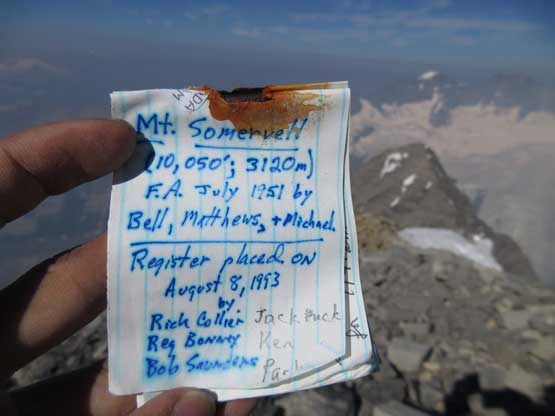 Mt. Somervell
(10,050'; 3120m)
F.A. July 1951 by
Bell, Matthews, + Michael.
Register placed on
August 8, 1993
by
Rick Collier Jack
Reg Bonney Ken
Bob Saunders